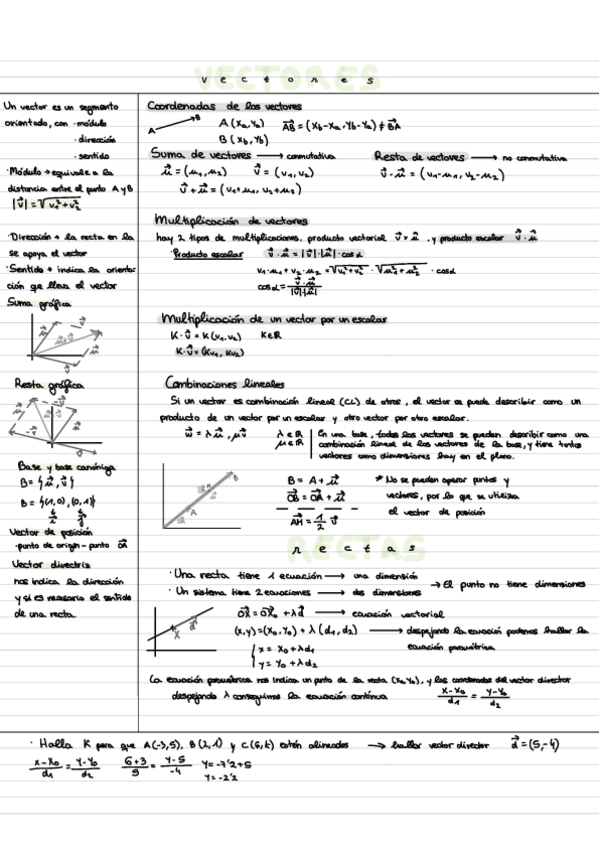 VECTORES
vectores
Un vector es un segmento
orientado, con · módulo
· dirección
· sentido
· Módulo → equivale a la
distancia entre el punto A y B
|v⃗| = √v₁²+v₂²
· Dirección → la recta en la
se apoya el vector
· Sentido → indica la orienta-
ción que lleva el vector
Suma gráfica
Resta gráfica
Base y base canónica
B = {u⃗, v⃗}
B = {(1,0), (0,1)}
Vector de posición
· punto de origin – punto OA⃗
Vector directriz
nos indica la dirección
y si es necesario el sentido
de una recta.
Coordenadas de los vectores
A B
A (Xa, Ya) AB⃗ = (Xb-Xa, Yb-Ya) ≠ BA⃗
B (Xb, Yb)
Suma de vectores → conmutativa
Resta de vectores → no conmutativa
u⃗ = (u₁, u₂) v⃗ = (v₁, v₂)
v⃗ - u⃗ = (v₁-u₁, v₂-u₂)
v⃗ + u⃗ = (v₁+u₁, v₂+u₂)
Multiplicación de vectores
hay 2 tipos de multiplicaciones, producto vectorial v⃗ × u⃗, y producto escalar v⃗ · u⃗
· Producto escalar v⃗ · u⃗ = |v⃗|·|u⃗|·cosα
v₁·u₁ + v₂·u₂ = √v₁²+v₂² · √u₁²+u₂² · cosα
cosα = v⃗·u⃗ / |v⃗||u⃗|
Multiplicación de un vector por un escalar
K·v⃗ = K(v₁, v₂) K∈ℝ
K·v⃗ = (Kv₁, Kv₂)
Combinaciones lineales
Si un vector es combinación lineal (CL) de otros, el vector se puede describir como un
producto de un vector por un escalar y otro vector por otro escalar.
w⃗ = λu⃗, μv⃗ λ∈ℝ
μ∈ℝ
En una base, todos los vectores se pueden describir como una
combinación lineal de los vectores de la base, y tiene tantos
vectores como dimensiones hay en el plano.
B = A + u⃗
OB⃗ = OA⃗ + u⃗
AM⃗ = 1/2 v⃗
* No se pueden operar puntos y
vectores, por lo que se utiliza
el vector de posición
RECTAS
rectas
· Una recta tiene 1 ecuación → una dimensión
· Un sistema tiene 2 ecuaciones → dos dimensiones
→ El punto no tiene dimensiones
OX⃗ = OX₀⃗ + λd⃗ → ecuación vectorial
(x,y) = (x₀, y₀) + λ(d₁, d₂) → despejando la ecuación podemos hallar la
ecuación paramétrica
x = x₀ + λd₁
y = y₀ + λd₂
La ecuación paramétrica nos indica un punto de la recta (x₀, y₀), y las coordenadas del vector director
despejando λ conseguimos la ecuación continua x-x₀/d₁ = y-y₀/d₂
· Halla K para que A(-3,5), B(2,1) y C(6,k) estén alineados → hallar vector director d⃗ = (5,-4)
x-x₀/d₁ = y-y₀/d₂ 6+3/5 = y-5/-4 y = -7'2+5
y = -2'2